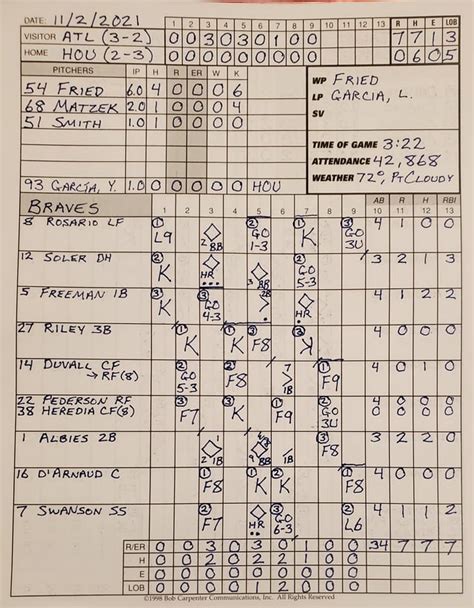 DATE: 11/2/2021 1 2 3 4 5 6 7 8 9 10 11 12 13 R H E LOB
VISITOR ATL (3-2) 0 0 3 0 3 0 1 0 0 7 7 1 3
HOME HOU (2-3) 0 0 0 0 0 0 0 0 0 0 6 0 5
PITCHERS IP H R ER W K
54 FRIED 6.0 4 0 0 0 6
68 MATZEK 2.0 1 0 0 0 4
51 SMITH 1.0 1 0 0 0 0
WP FRIED
LP GARCIA, L.
SV
TIME OF GAME 3:22
ATTENDANCE 42,868
WEATHER 72°, PTCLOUDY
93 GARCÍA, Y. 1.0 0 0 0 0 0 HOU
BRAVES 1 2 3 4 5 6 7 8 9 AB 10 R 11 H 12 RBI 13
8 ROSARIO LF 1 L9 2 BB 1 GO 1-3 1 K 3 GO 3U 4 1 0 0
12 SOLER DH 2 K HR 3 BB 2 GO 5-3 3 2 1 3
5 FREEMAN 1B 3 K 3 GO 4-3 2B HR 4 1 2 2
27 RILEY 3B 1 K K 2 F8 3 K 4 0 0 0
14 DUVALL CF → RF(8) 2 GO 5-3 2 F8 3 F8 7 1B 1 F9 4 0 1 0
22 PEDERSON RF
38 HEREDIA CF(8) 3 F7 3 K 1 F8 2 GO 3U 4 0 0 0
1 ALBIES 2B 3 1B 1 K BB 1B 3 F8 3 2 2 0
16 D'ARNAUD C 1 F8 1 K 2 K 1 F8 4 0 0 0
7 SWANSON SS 2 F7 HR 3 GO 6-3 2 L6 4 1 1 2
R/ER 0 0 3 0 3 0 1 0 0 34 7 7 7
H 0 0 2 0 2 2 1 0 0
E 0 0 0 0 0 0 0 0 0
LOB
©1998 Bob Carpenter Communications, Inc. All Rights Reserved